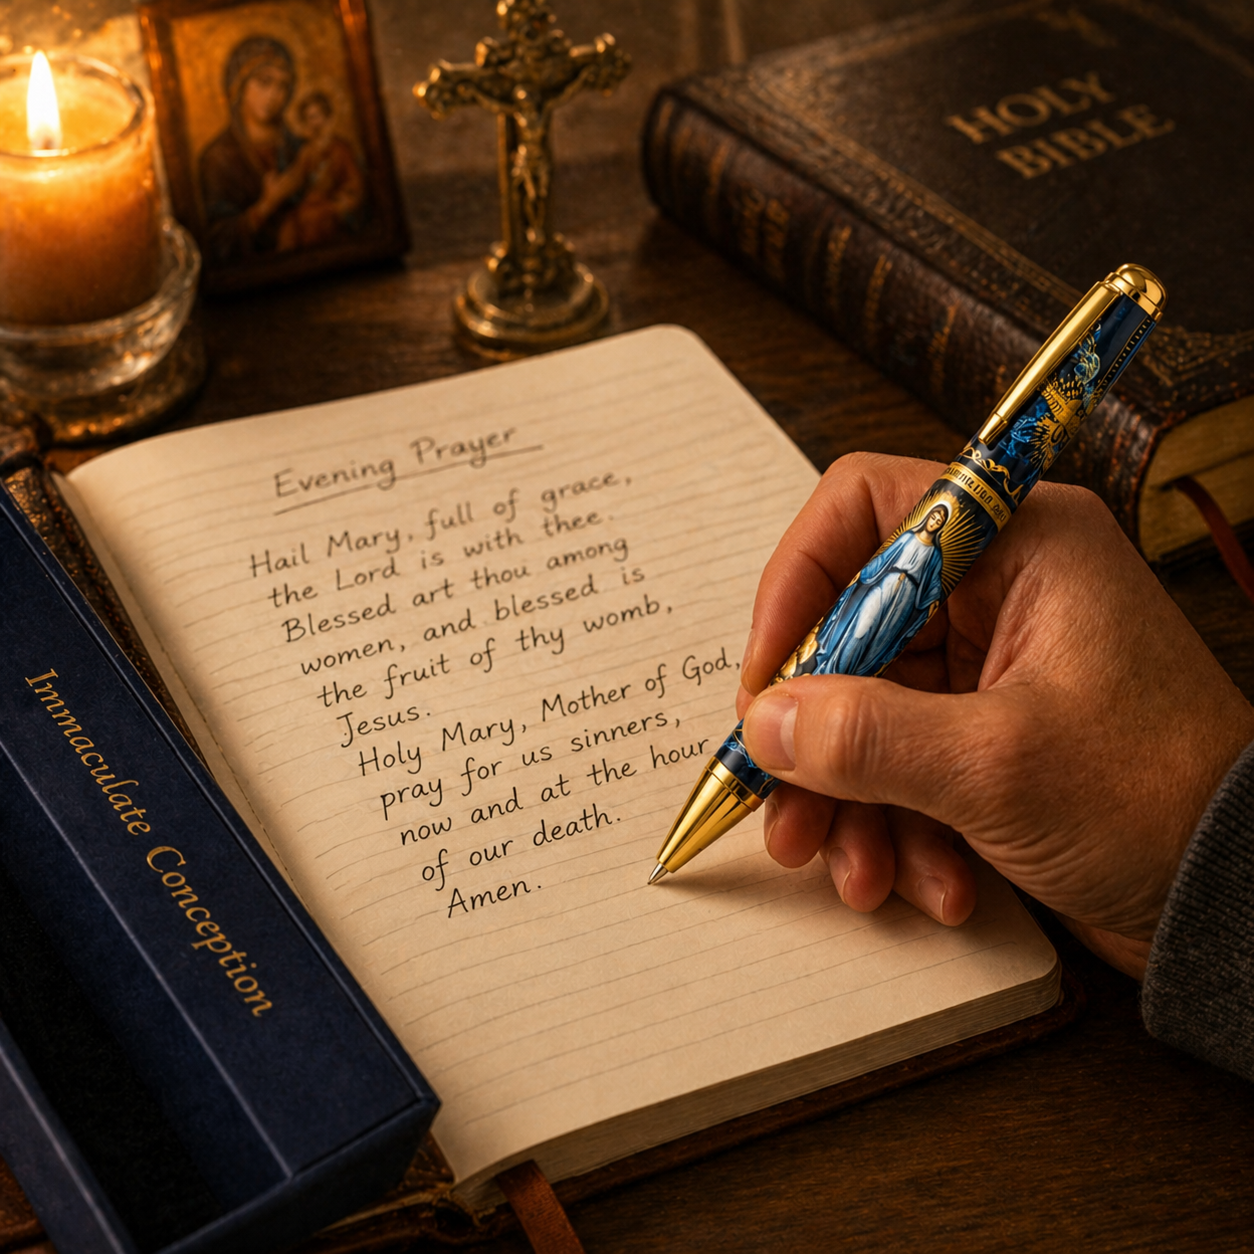 HOLY
BIBLE
Evening Prayer
Hail Mary, full of grace,
the Lord is with thee.
Blessed art thou among
women, and blessed is
the fruit of thy womb,
Jesus.
Holy Mary, Mother of God,
pray for us sinners,
now and at the hour
of our death.
Amen.
Immaculate Conception